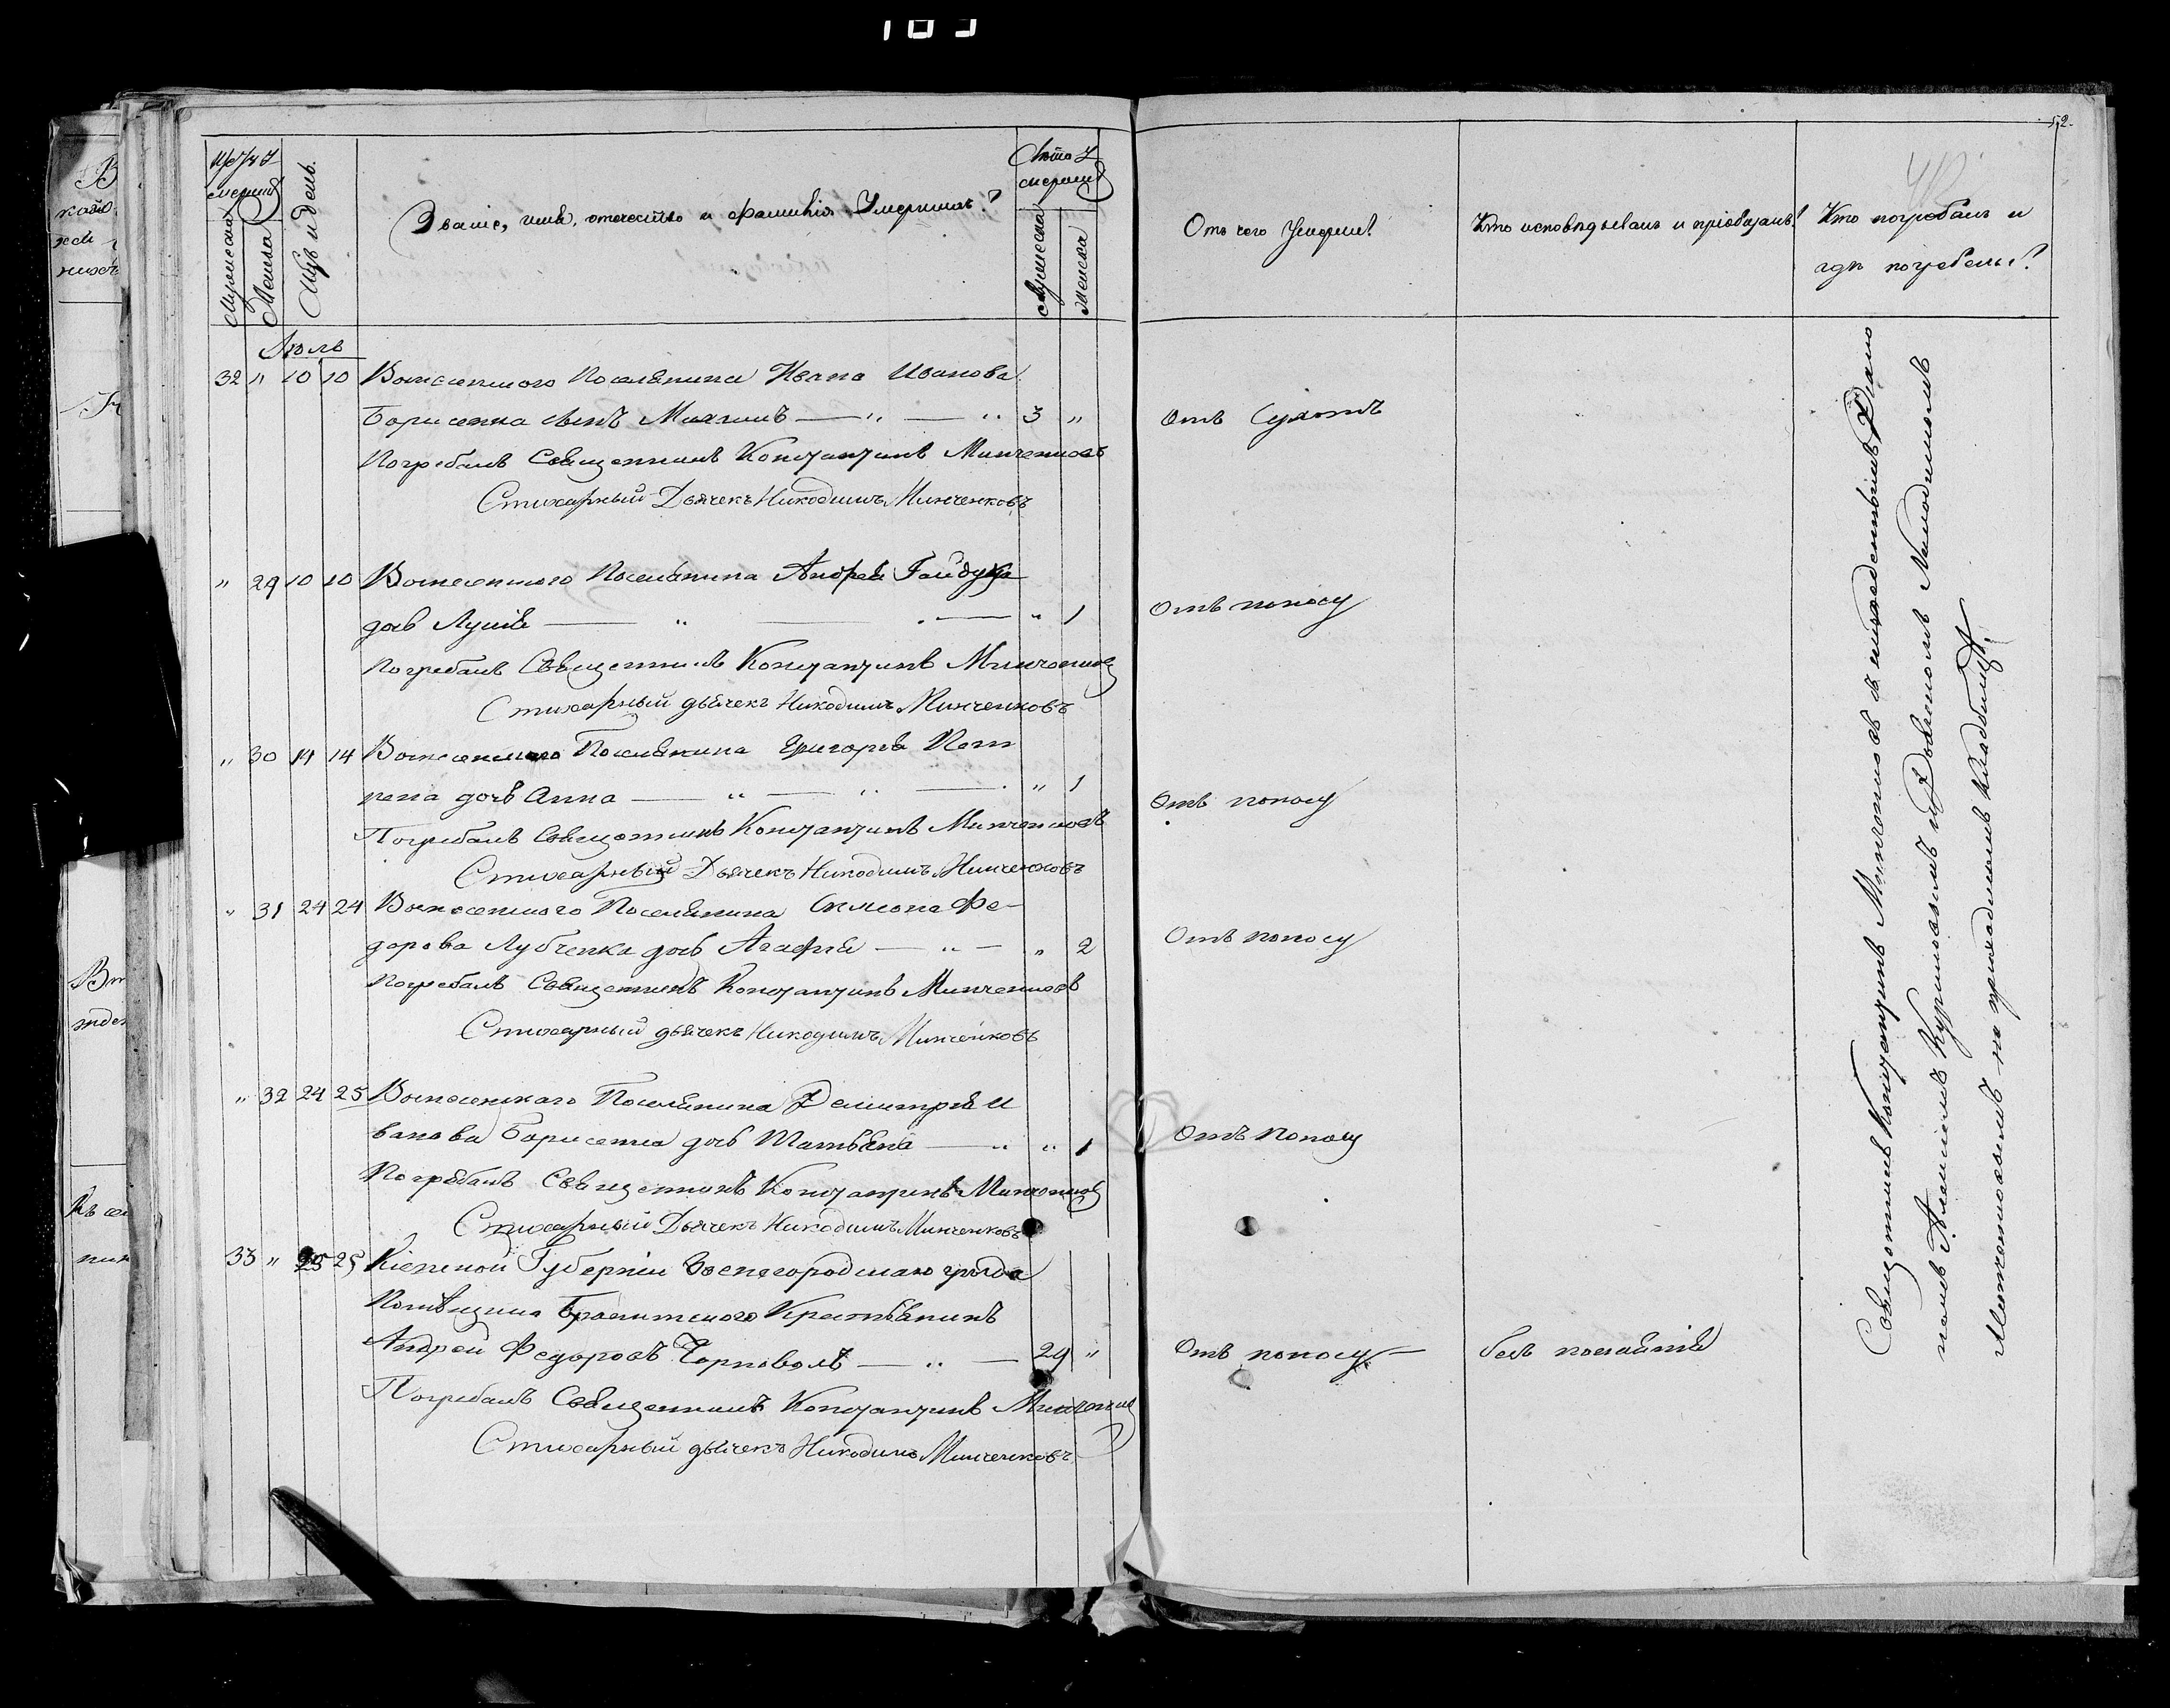 52.
Званіе, имя, отечество и фамилія Умершихъ?
Лѣта У-
мершихъ
Мужеска
Женска
Мужеска
Женска
Отъ чего Умерше?
Кто исповѣдывалъ и пріобщалъ?
Кто погребалъ и
гдѣ погребены?
Іюль
32 " 10 10 Вознесенского Поселянина Ивана Иванова
Борисенка сынъ — " — " 3 "
Отъ Сухотъ
Погребалъ Священникъ Константинъ Минченковъ
Стихарный Дьячекъ Никодимъ Минченковъ
" 29 10 10 Вознесенского Поселянина Андрея Гайдука
дочь — " — " 1
Отъ поносу
Погребалъ Священникъ Константинъ Минченковъ
Стихарный дьячекъ Никодимъ Минченковъ
" 30 14 14 Вознесенского Поселянина Григорія
дочь Анна — " — " — " 1
Отъ поносу
Погребалъ Священникъ Константинъ Минченковъ
Стихарный Дьячекъ Никодимъ Минченковъ
" 31 24 24 Вознесенского Поселянина Симеона Фе-
дорова Лубченка дочь Агафія — " — " 2
Отъ поносу
Погребалъ Священникъ Константинъ Минченковъ
Стихарный дьячекъ Никодимъ Минченковъ
" 32 24 25 Вознесенскаго Поселянина Димитрія И
ванова Борисенка дочь Татьяна — " " 1
Отъ поносу
Погребалъ Священникъ Константинъ Минченковъ
Стихарный Дьячекъ Никодимъ Минченковъ
33 " 25 25 Кіевской Губерніи Звенигородскаго уѣзда
Помѣщика Крестьянинъ
Андрей Федоровъ Чорноволъ — " — 29 "
Отъ поносу —
Погребалъ Священникъ Константинъ Минченковъ
Стихарный дьячекъ Никодимъ Минченковъ
Священникъ Константинъ Минченковъ съ Діако
номъ и Дьячкомъ Никодимомъ
Минченковымъ на приходскомъ кладбищѣ